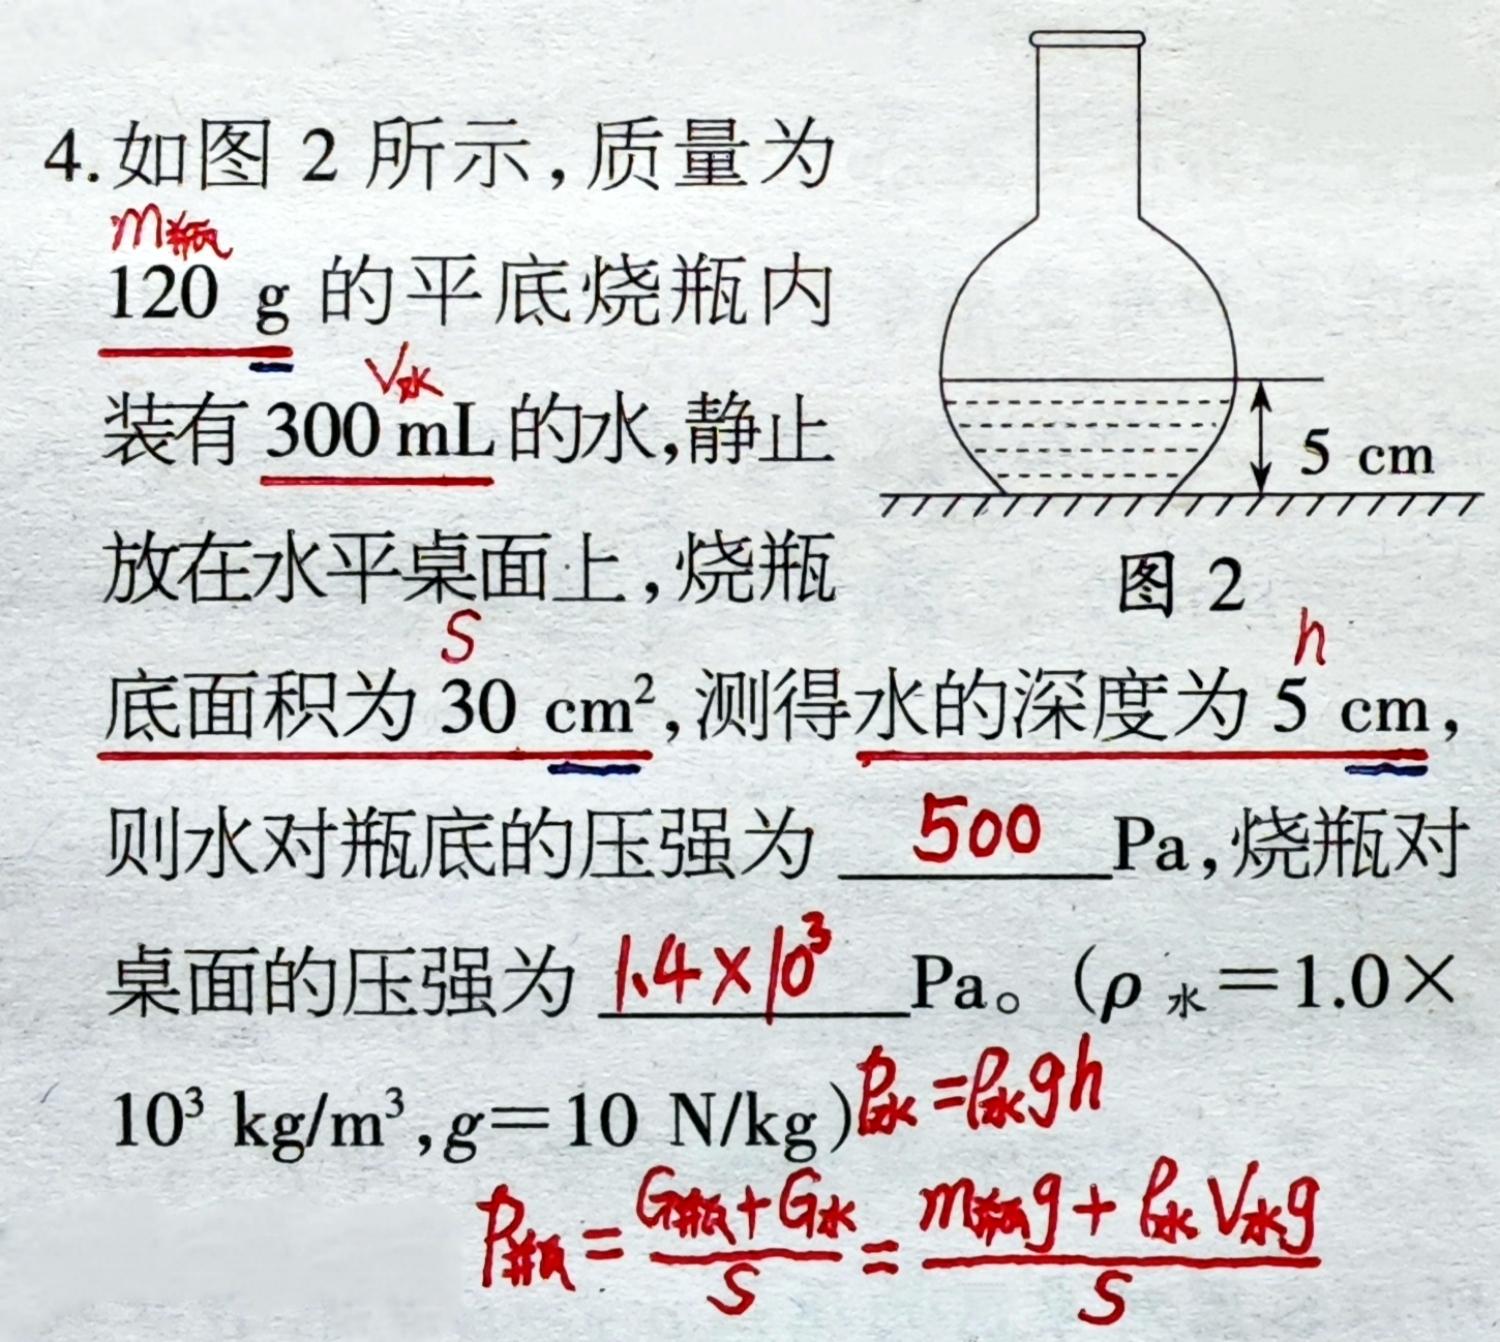 4.如图 2 所示,质量为
m瓶
120 g 的平底烧瓶内
V水
装有 300 mL 的水,静止
5 cm
放在水平桌面上,烧瓶
图 2
S
h
底面积为 30 cm²,测得水的深度为 5 cm,
则水对瓶底的压强为 500 Pa,烧瓶对
桌面的压强为 1.4×10³ Pa。(ρ水=1.0×
10³ kg/m³,g=10 N/kg) P水=ρ水gh
P瓶=(G瓶+G水)/S=(m瓶g+ρ水V水g)/S